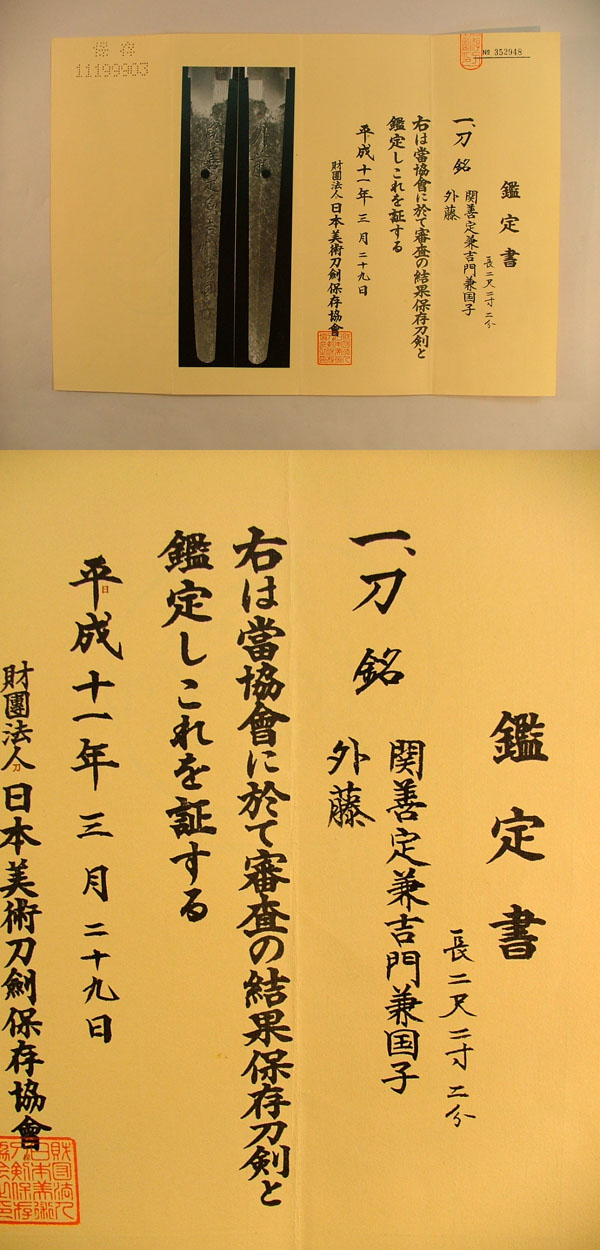 保存
11199903
No 352948
鑑定書
一、刀 銘 関善定兼吉門兼国子
外藤
長二尺二寸二分
右は當協會に於て審査の結果保存刀剣と
鑑定しこれを証する
平成十一年三月二十九日
財團法人日本美術刀剣保存協會
鑑定書
長二尺二寸二分
一、刀 銘 関善定兼吉門兼国子
外藤
右は當協會に於て審査の結果保存刀剣と
鑑定しこれを証する
平成十一年三月二十九日
財團法人日本美術刀劍保存協會